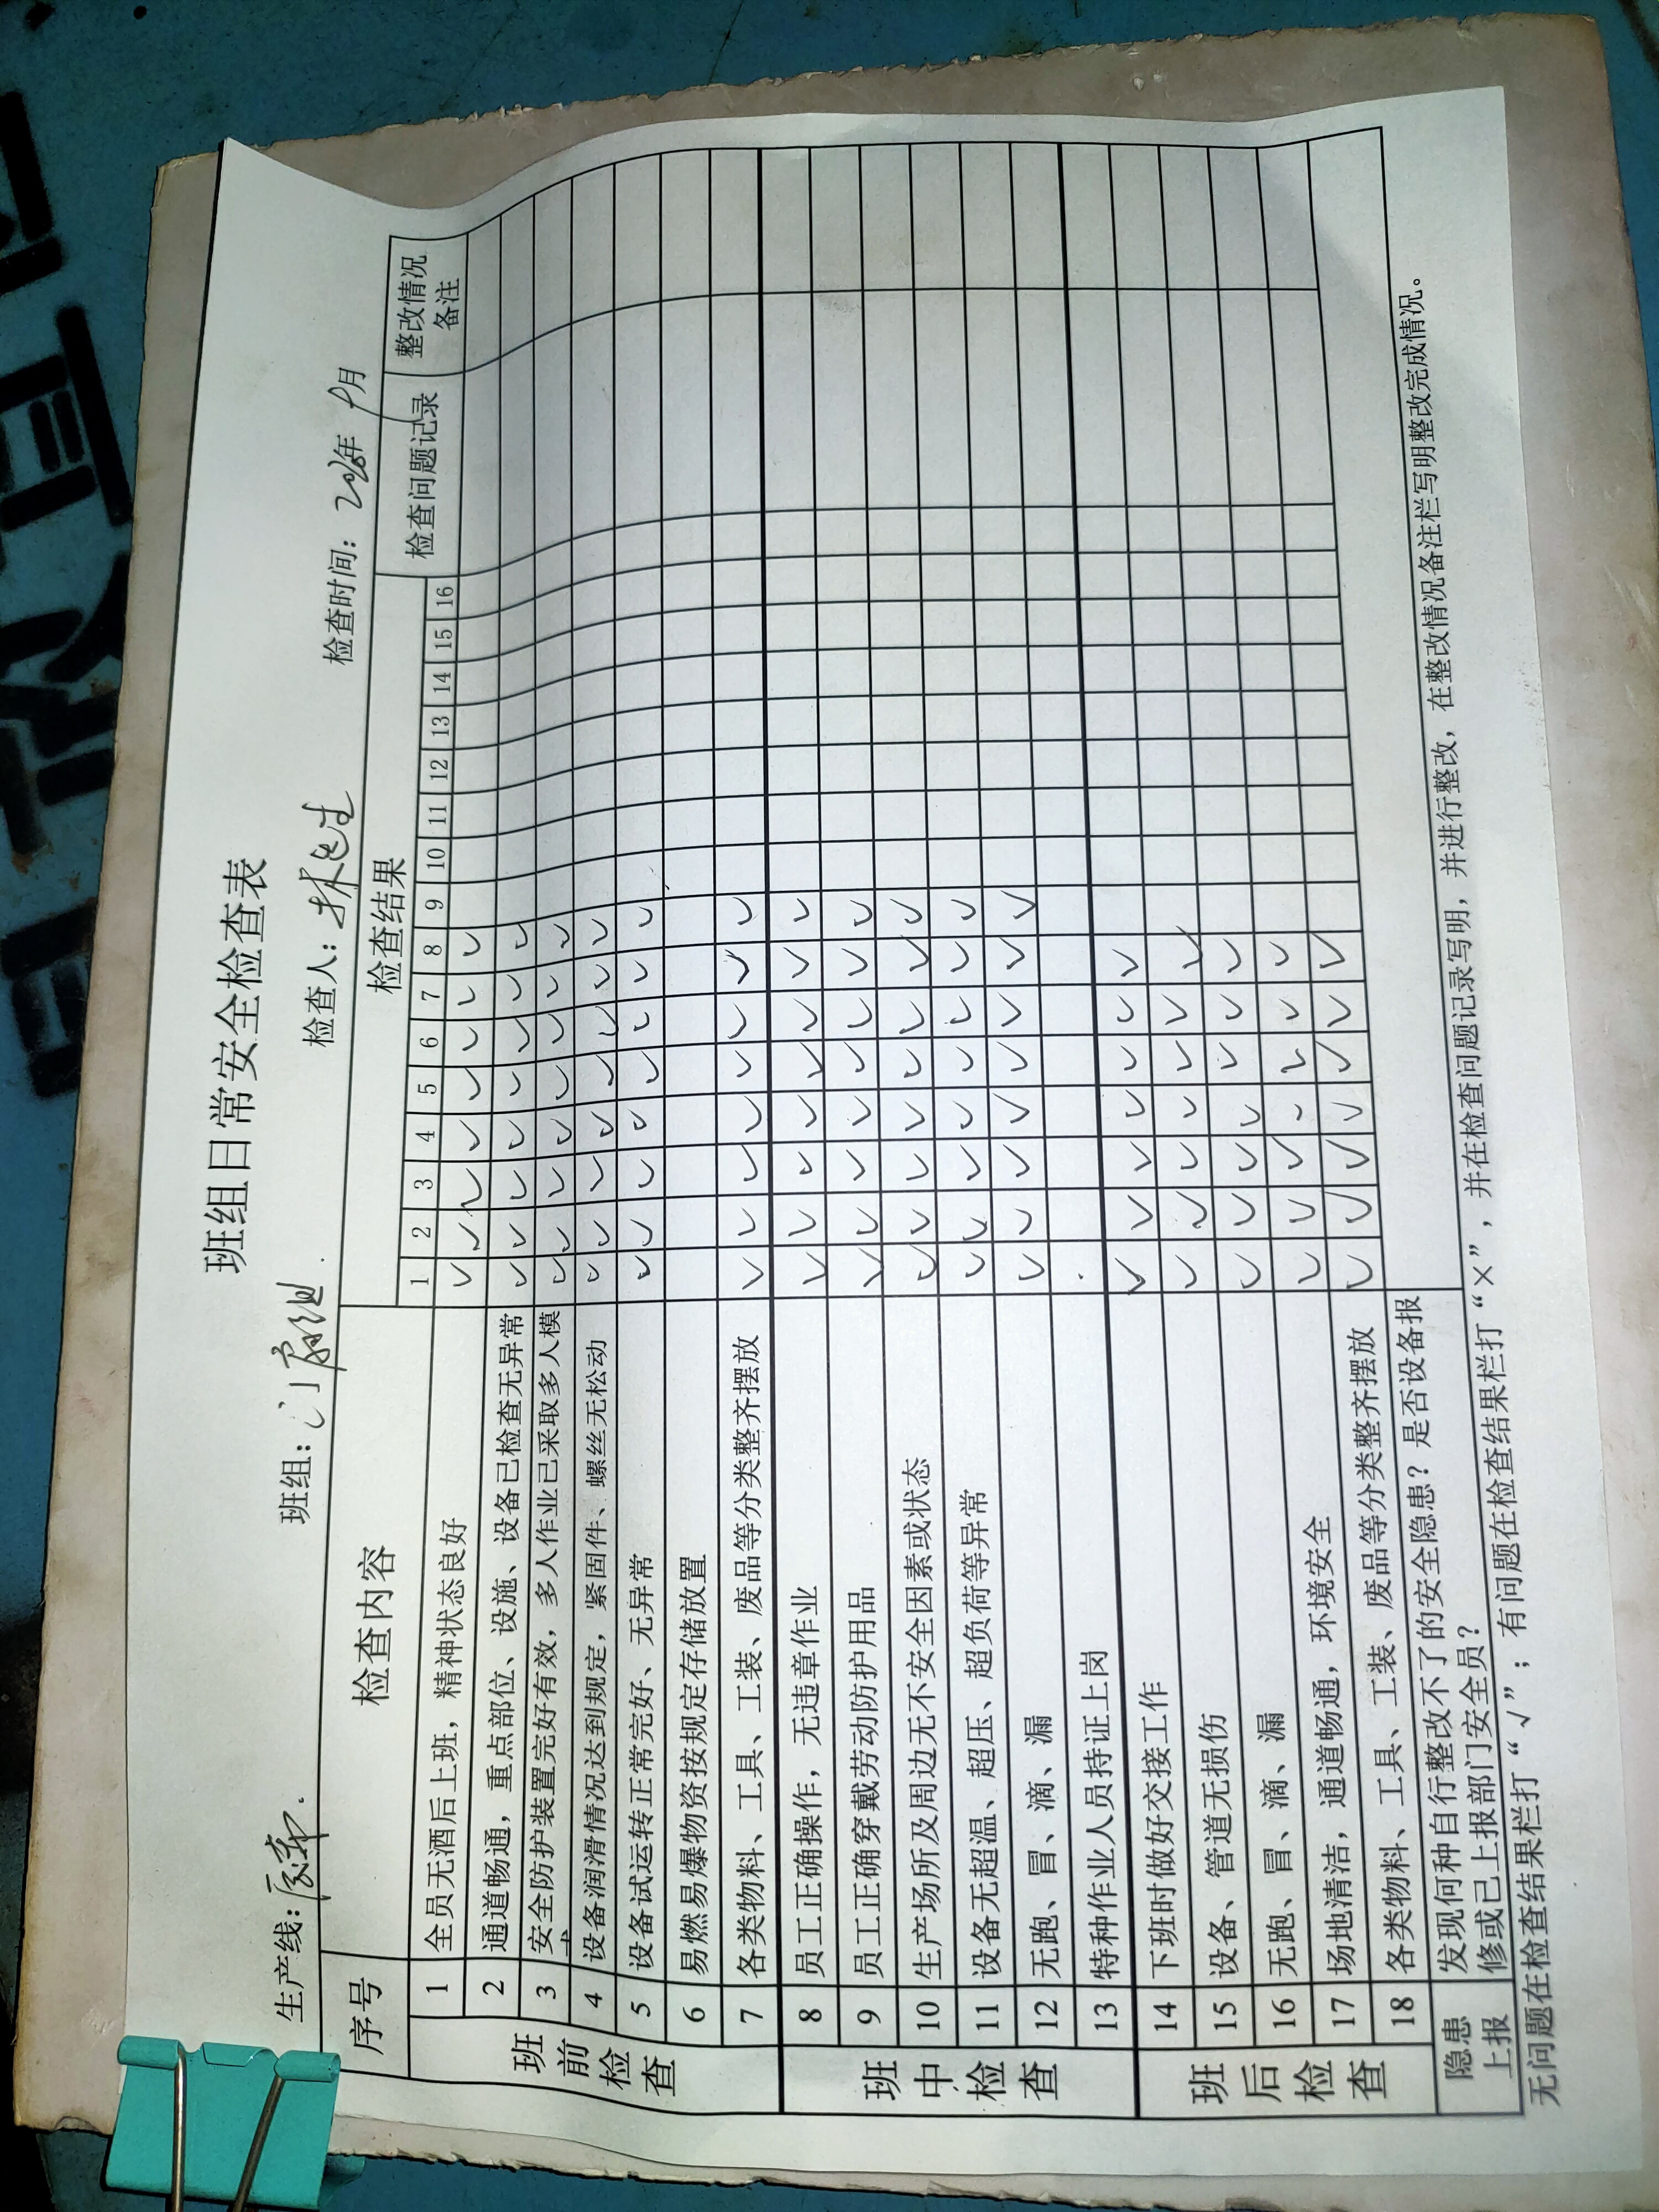 班组日常安全检查表
生产线： 班组： 检查人： 检查时间：2026年 月
序号 检查内容 检查结果 检查问题记录 整改情况备注
1 2 3 4 5 6 7 8 9 10 11 12 13 14 15 16
班前检查
1 全员无酒后上班，精神状态良好 √ √ √ √ √ √ √ √
2 通道畅通，重点部位、设施、设备已检查无异常 √ √ √ √ √ √ √ √
3 安全防护装置完好有效，多人作业已采取多人模式 √ √ √ √ √ √ √ √
4 设备润滑情况达到规定，紧固件、螺丝无松动 √ √ √ √ √ √ √ √
5 设备试运转正常完好、无异常 √ √ √ √ √ √ √ √
6 易燃易爆物资按规定存储放置
7 各类物料、工具、工装、废品等分类整齐摆放 √ √ √ √ √ √ √ √
班中检查
8 员工正确操作，无违章作业 √ √ √ √ √ √ √ √
9 员工正确穿戴劳动防护用品 √ √ √ √ √ √ √ √
10 生产场所及周边无不安全因素或状态 √ √ √ √ √ √ √ √
11 设备无超温、超压、超负荷等异常 √ √ √ √ √ √ √ √
12 无跑、冒、滴、漏 √ √ √ √ √ √ √ √
13 特种作业人员持证上岗
班后检查
14 下班时做好交接工作 √ √ √ √ √ √ √
15 设备、管道无损伤 √ √ √ √ √ √ √
16 无跑、冒、滴、漏 √ √ √ √ √ √ √
17 场地清洁，通道畅通，环境安全 √ √ √ √ √ √ √
18 各类物料、工具、工装、废品等分类整齐摆放 √ √ √ √ √ √ √
隐患上报 发现何种自行整改不了的安全隐患？是否设备报
修或已上报部门安全员？
无问题在检查结果栏打“√”；有问题在检查结果栏打“×”，并在检查问题记录写明，并进行整改，在整改情况备注栏写明整改完成情况。